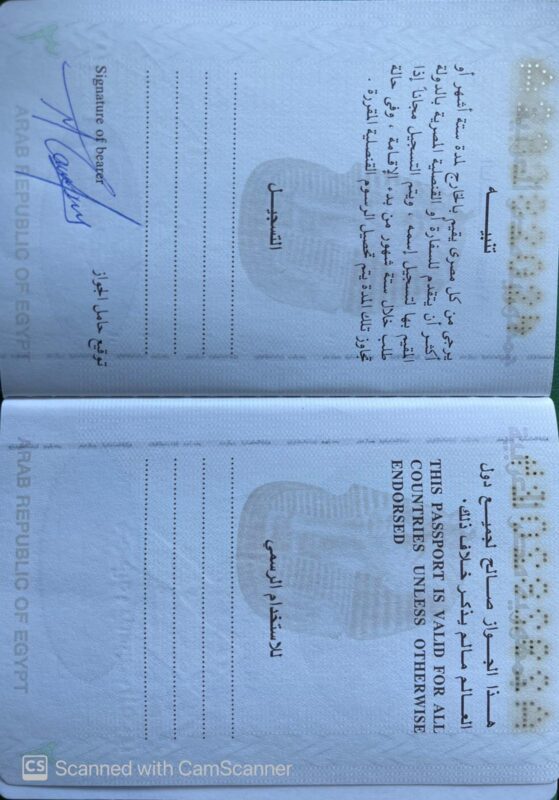 تنبيــــه
يرجى من كل مصرى يقيم بالخارج لمدة ستة أشهر أو
أكثر أن يتقدم للسفارة أو القنصلية المصرية بالدولة
المقيم بها لتسجيل إسمه ، ويتم التسجيل مجاناً إذا
طلب خلال ستة شهور من بدء الإقامة ، وفى حالة
تجاوز تلك المدة يتم تحصيل الرسوم القنصلية المقررة .
التسجيــل
Signature of bearer
توقيع حامل الجواز
ARAB REPUBLIC OF EGYPT
هــذا الجــواز صــالح لجميــع دول
العــالم مــالم يذكــر خــلاف ذلك .
THIS PASSPORT IS VALID FOR ALL
COUNTRIES UNLESS OTHERWISE
ENDORSED
للاستخدام الرسمي
ARAB REPUBLIC OF EGYPT
CS Scanned with CamScanner